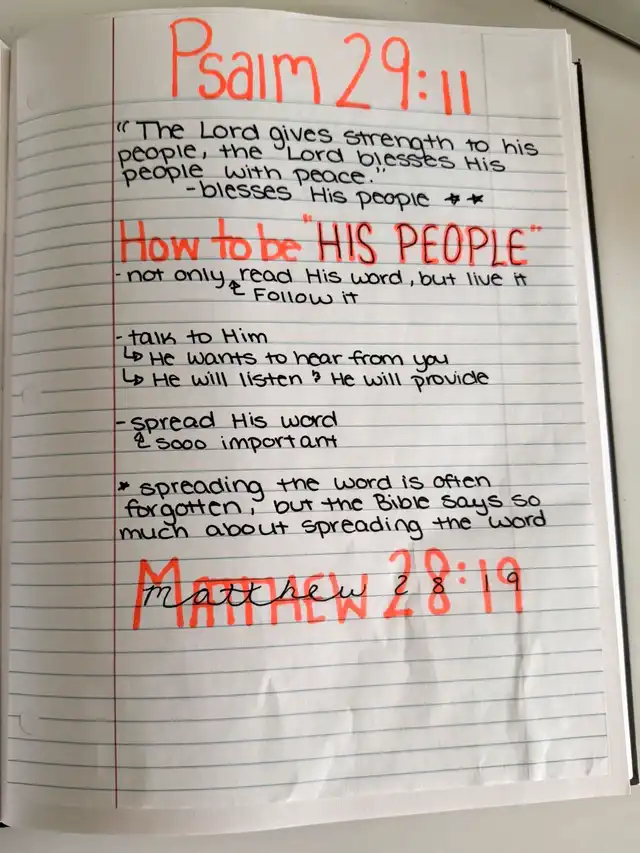 Psalm 29:11
"The Lord gives strength to his
people, the Lord blesses His
people with peace."
-blesses His people **
How to be "HIS PEOPLE"
-not only read His word, but live it
Follow it
-talk to Him
↳ He wants to hear from you
↳ He will listen & He will provide
-spread His word
sooo important
* spreading the word is often
forgotten, but the Bible says so
much about spreading the word
MATTHEW 28:19
matthew 28 19